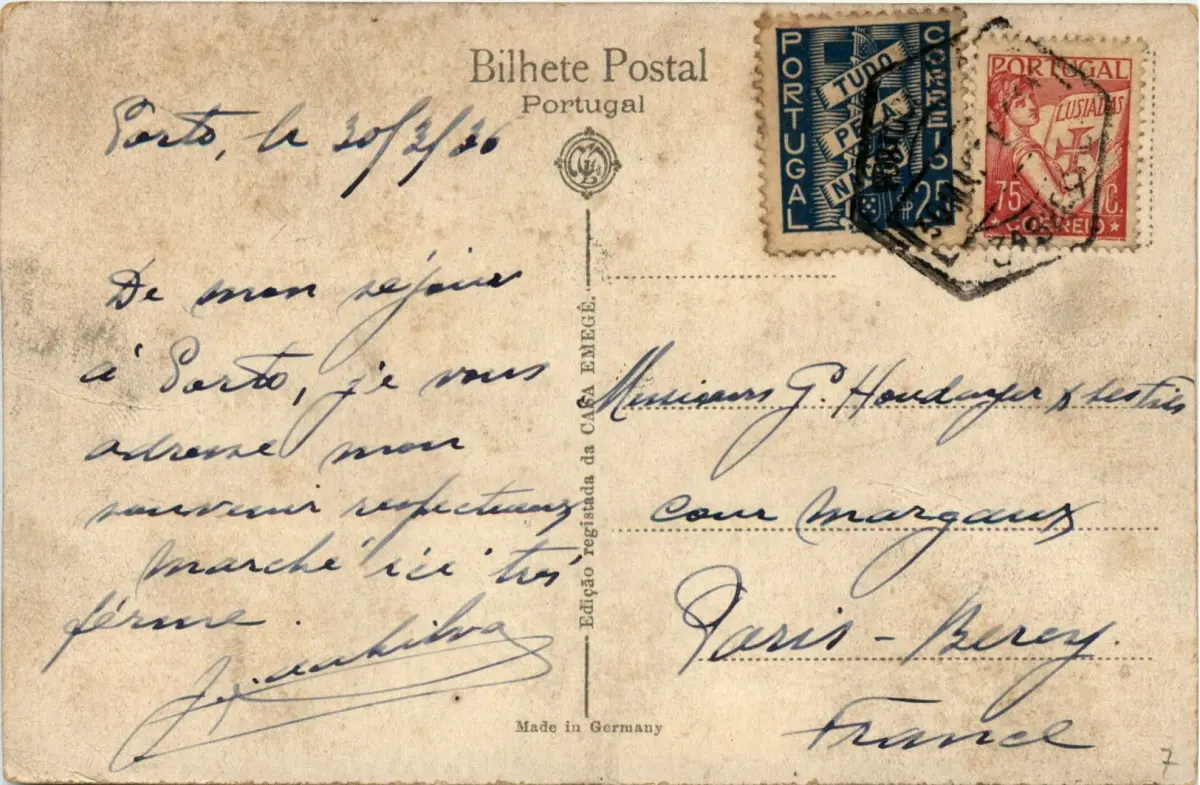 Bilhete Postal
Portugal
Porto, le 30/3/36
De mon séjour
à Porto, je vous
adresse mon
souvenir respectueux
marché ici trés
férme.
Silva
Edição registada da CASA EMEGÊ.
Made in Germany
PORTUGAL
CORREIO
TUDO
PELA
NAÇÃO
$25
PORTUGAL
LUSIADAS
75 C.
CORREIO
Messieurs G.
cour margaux
Paris - Bercy.
France
7